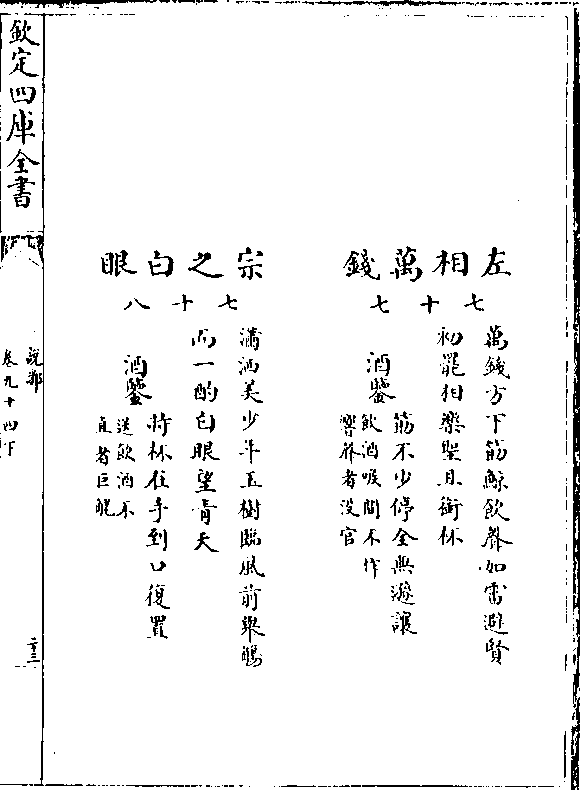 左相萬錢
七十七
萬錢方下筯鯨飲聲如雷避賢
初罷相樂聖且銜杯
酒鑒
筯不少停全無遜讓
飲酒吸間不作
響聲者没官
宗之白眼
七十八
瀟洒美少年玉樹臨風前舉觴
而一酌白眼望青天
酒鑒
將杯在手到口復置
送飲酒不
直者巨觥
欽定四庫全書
說郛
卷九十四下